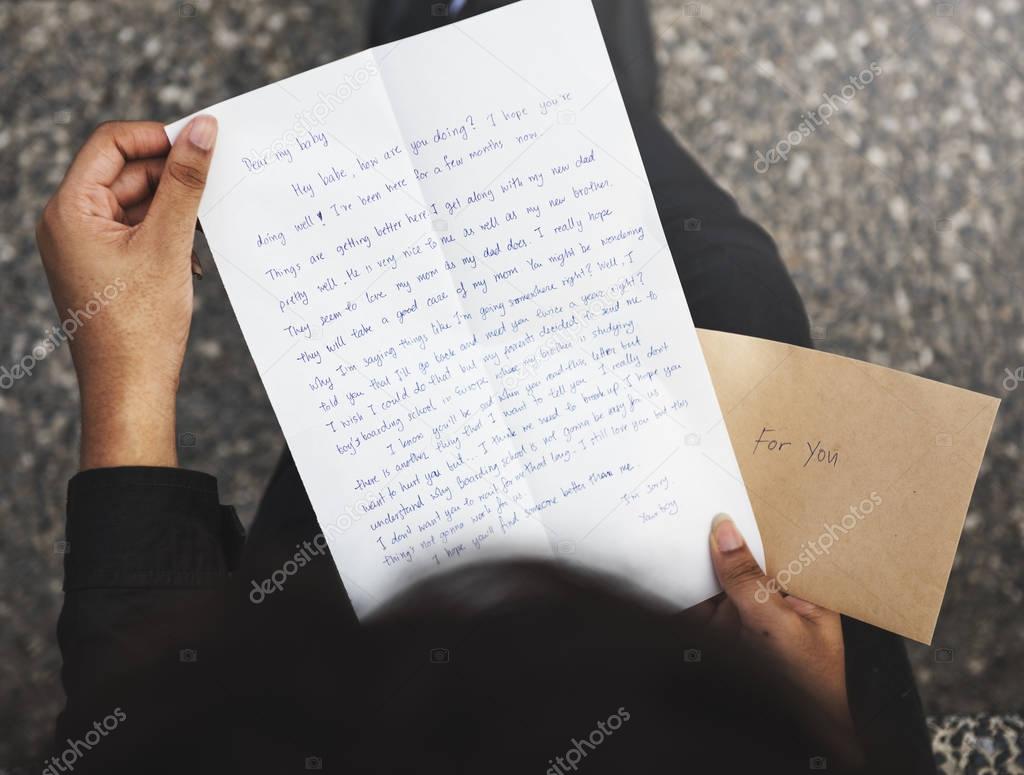 Dear my baby
Hey babe, how are you doing? I hope you're
doing well! I've been here for a few months now.
Things are getting better here. I get along with my new dad
pretty well. He is very nice to me as well as my new brother.
They seem to love my mom as my dad does. I really hope
they will take a good care of my mom. You might be wondering
why I'm saying things like I'm going somewhere right? Well, I
told you that I'll go back and meet you twice a year, right?
I wish I could do that but my parents decided to send me to
boy's boarding school in Europe where my brother is studying
I know you'll be sad when you read this letter but
there is another thing that I want to tell you. I really don't
want to hurt you but... I think we need to break up. I hope you
understand why. Boarding school is not gonna be easy for us
I don't want you to wait for me that long. I still love you but this
thing's not gonna work for us.
I hope you'll find someone better than me.
I'm sorry.
Your boy
For You
depositphotos
depositphotos
depositphotos
depositphotos
depositphotos
depositphotos
depositphotos
depositphotos
depositphotos